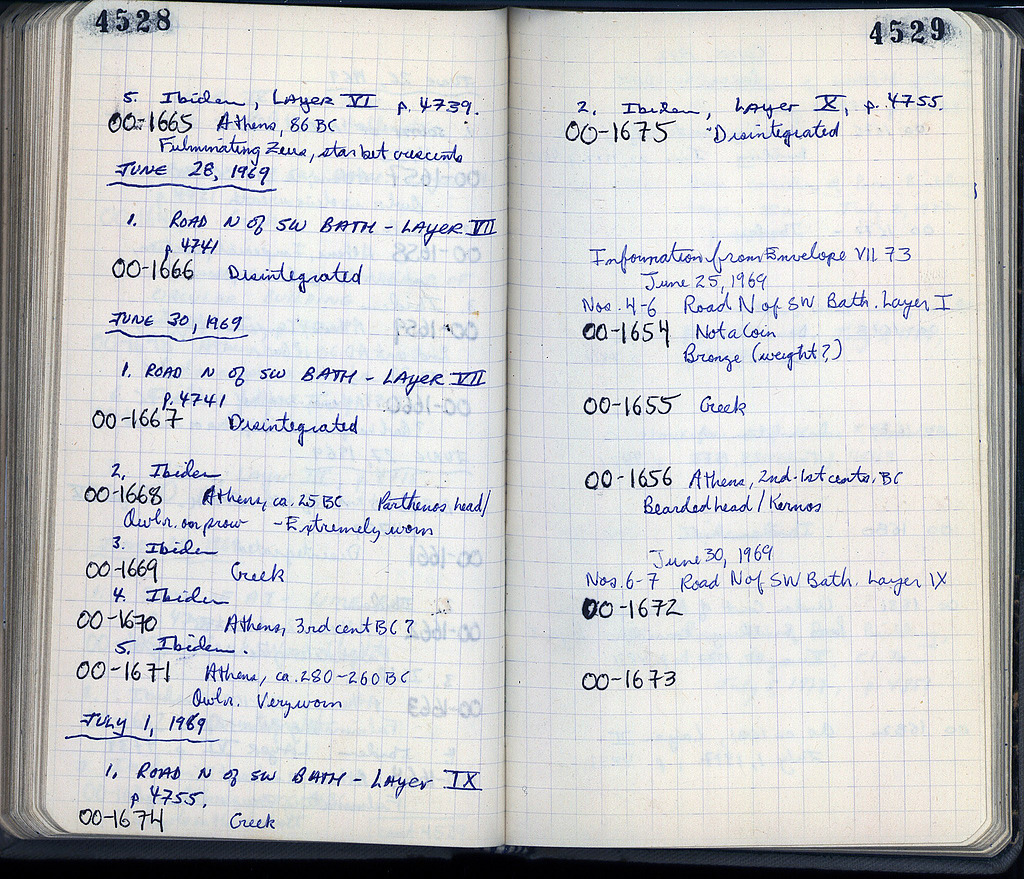 4528
5. Ibidem, Layer VI p. 4739.
OO-1665 Athens, 86 BC
Fulminating Zeus, star bet crescents
JUNE 28, 1969
1. ROAD N of SW BATH - LAyer VII
p. 4741
OO-1666 Disintegrated
JUNE 30, 1969
1. ROAD N of SW BATH - LAyer VII
p. 4741
OO-1667 Disintegrated
2. Ibidem
OO-1668 Athens, ca. 25 BC Parthenos head/
Owl r. on prow - Extremely worn
3. Ibidem
OO-1669 Greek
4. Ibidem
OO-1670 Athens, 3rd cent BC?
5. Ibidem.
OO-1671 Athens, ca. 280-260 BC
Owl r. Very worn
JULY 1, 1969
1. ROAD N of SW BATH - LAyer IX
p 4755.
OO-1674 Greek
4529
2. Ibidem, LAyer X, p. 4755.
OO-1675 Disintegrated
Information from Envelope VII 73
June 25, 1969
Nos. 4-6 Road N of SW Bath. Layer I
OO-1654 Not a Coin
Bronze (weight?)
OO-1655 Greek
OO-1656 Athens, 2nd-1st cents. BC
Bearded head / Kernos
June 30, 1969
Nos. 6-7 Road N of SW Bath. Layer IX
OO-1672
OO-1673